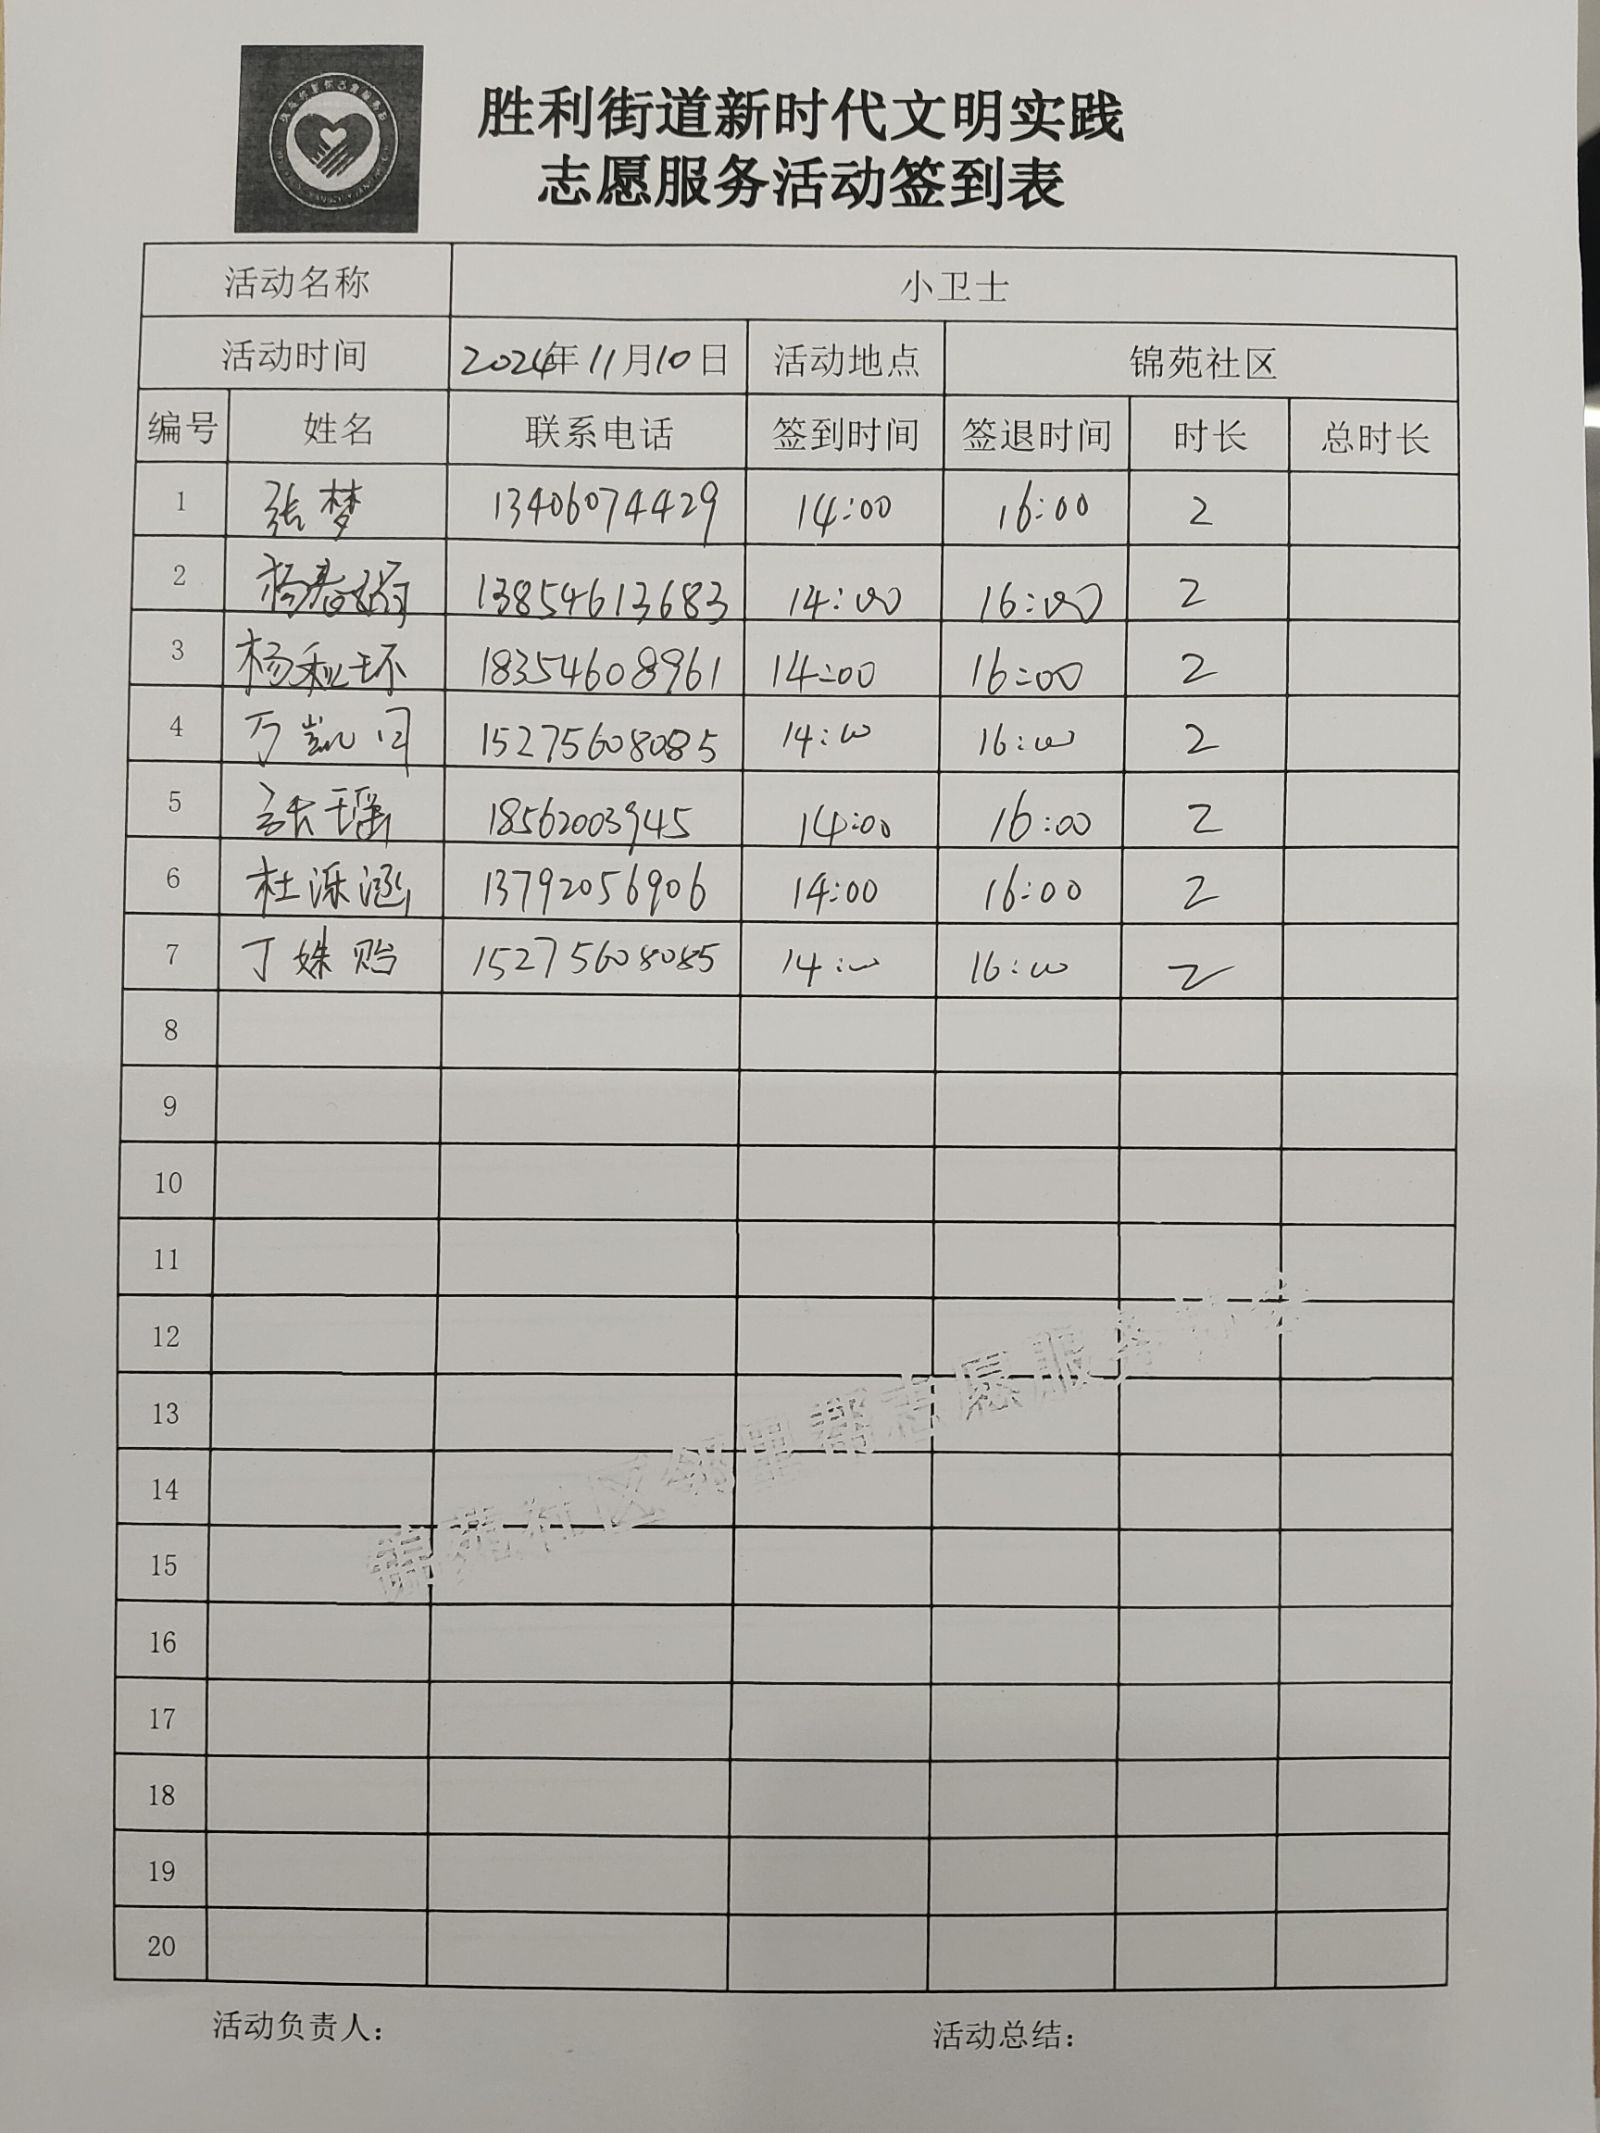 胜利街道新时代文明实践
志愿服务活动签到表
活动名称 小卫士
活动时间 2024年11月10日 活动地点 锦苑社区
编号 姓名 联系电话 签到时间 签退时间 时长 总时长
1 张梦 13406074429 14:00 16:00 2
2 13854613683 14:00 16:00 2
3 杨利环 18354608961 14:00 16:00 2
4 15275608085 14:00 16:00 2
5 张瑶 18562003945 14:00 16:00 2
6 杜泺涵 13792056906 14:00 16:00 2
7 丁姝贻 15275608085 14:00 16:00 2
8
9
10
11
12
13
14
15
16
17
18
19
20
锦苑社区邻里帮志愿服务
活动负责人：
活动总结：